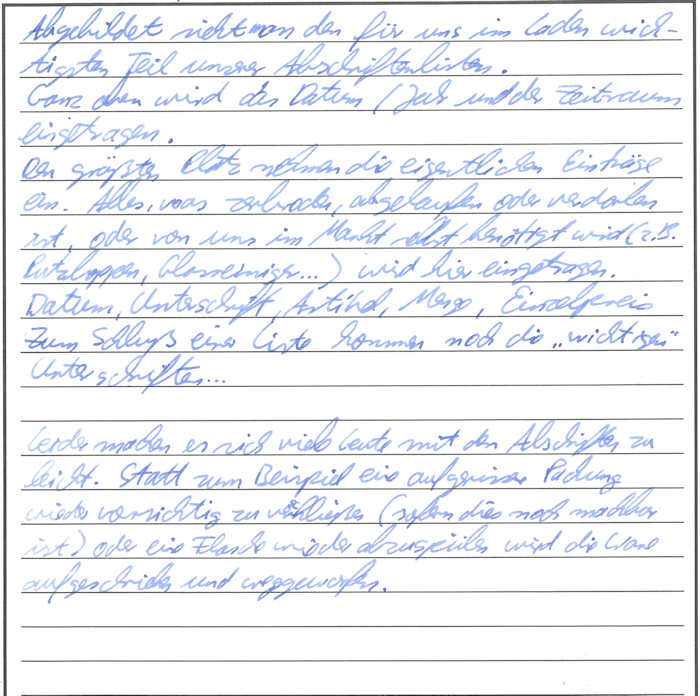 Abgebildet sieht man den für uns im Laden wich-
tigsten Teil unserer Abschriftenlisten.
Ganz oben wird das Datum (Jahr und der Zeitraum
eingetragen.
Den größten Platz nehmen die eigentlichen Einträge
ein. Alles, was zerbrochen, abgelaufen oder verdorben
ist, oder von uns im Markt selbst benötigt wird (z.B.
Putzlappen, Glasreiniger...) wird hier eingetragen.
Datum, Unterschrift, Artikel, Menge, Einzelpreis
Zum Schluß einer Liste kommen noch die „wichtigen"
Unterschriften...
Leider machen es sich viele Leute mit den Abschriften zu
leicht. Statt zum Beispiel eine aufgerissene Packung
wieder vorsichtig zu verschließen (sofern dies noch machbar
ist) oder eine Flasche wieder abzuspülen wird die Ware
aufgeschrieben und weggeworfen.